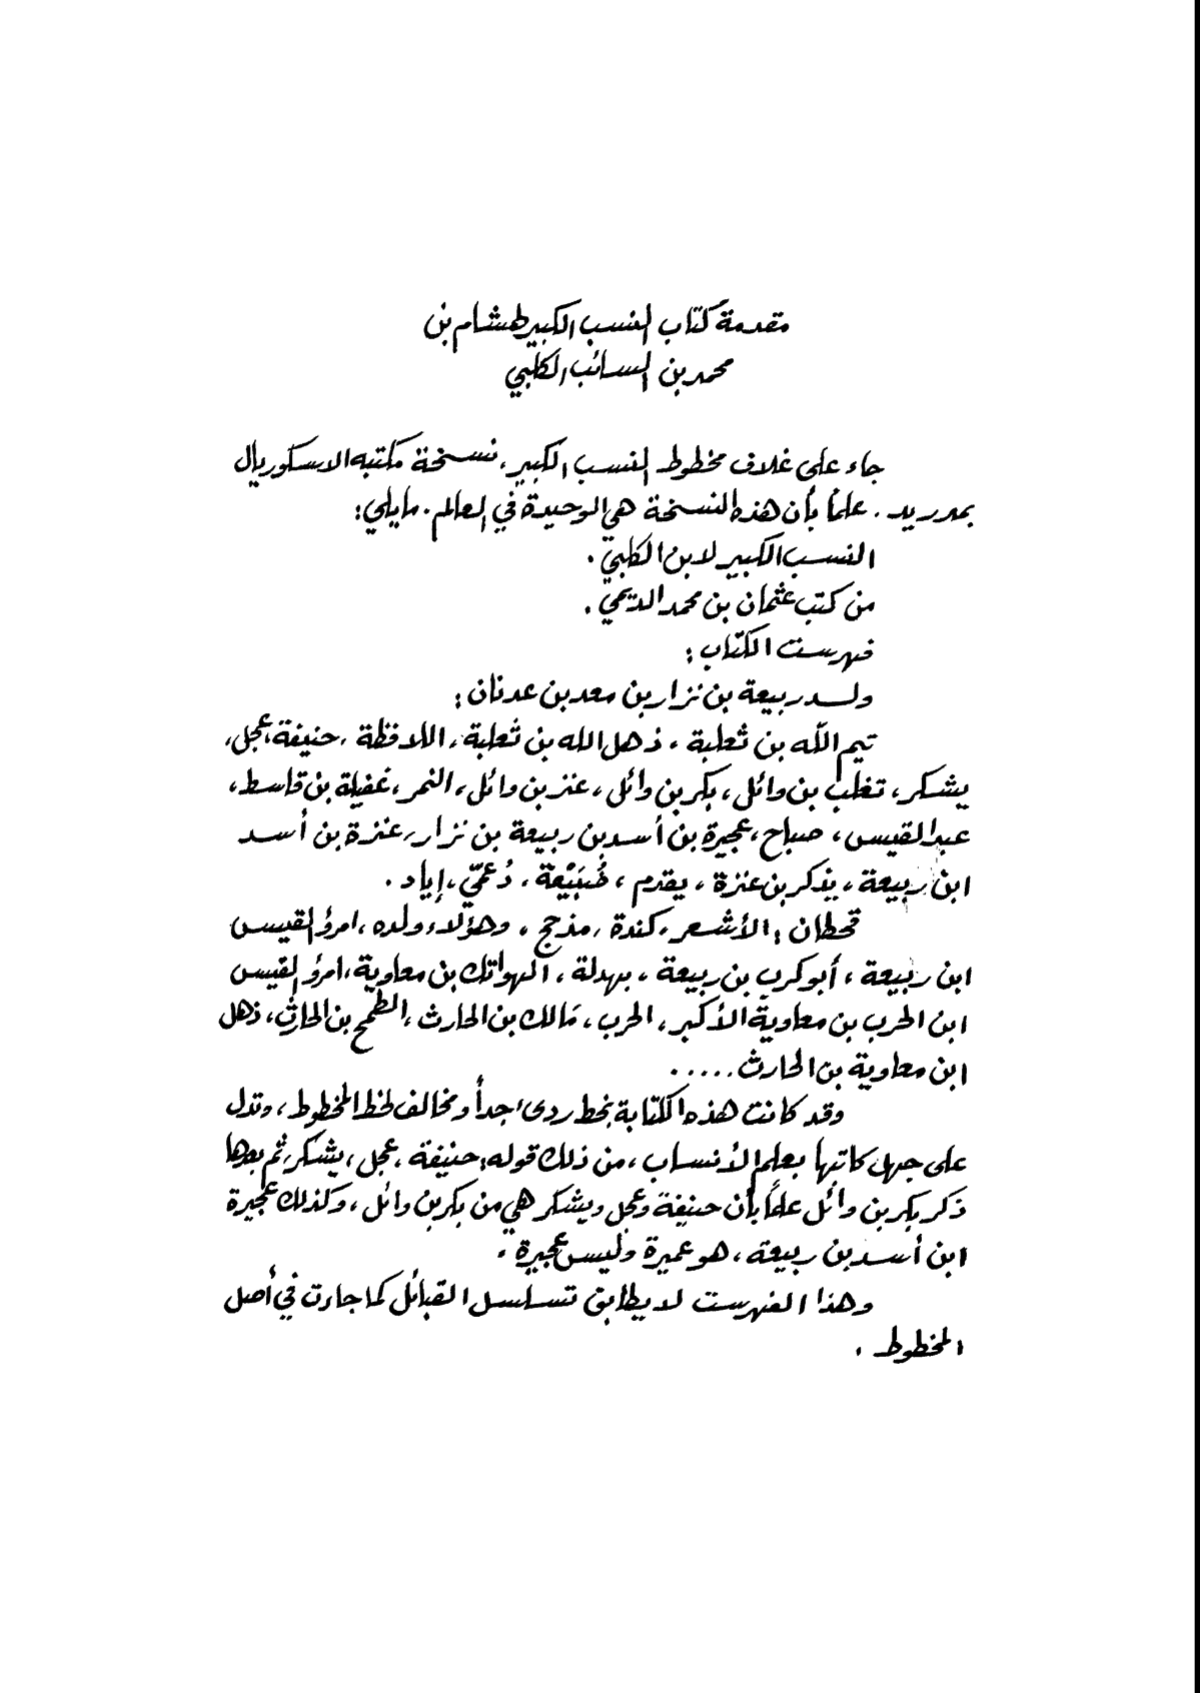 مقدمة كتاب النسب الكبير لهشام بن
محمد بن السائب الكلبي
جاء على غلاف مخطوط النسب الكبير، نسخة مكتبه الاسكوريال
بمدريد. علماً بأن هذه النسخة هي الوحيدة في العالم. مايلي:
النسب الكبير لابن الكلبيّ.
من كتب عثمان بن محمد الديمي.
فهرست الكتاب:
ولد ربيعة بن نزار بن معد بن عدنان:
تيم الله بن ثعلبة، ذهل الله بن ثعلبة، اللافظة، حنيفة، عجل،
يشكر، تغلب بن وائل، بكر بن وائل، عنز بن وائل، النمر، غفيلة بن قاسط،
عبد القيس، صباح، عجيرة بن أسد بن ربيعة بن نزار، عنزة بن أسد
ابن ربيعة، يذكر بن عنزة، يقدم، ضُبَيْعة، دُعميّ، إياد.
قحطان: الأشعر، كندة، مذحج، وهؤلاء ولده، امرؤ القيس
ابن ربيعة، أبو كرب بن ربيعة، بهدلة، الهواتك بن معاوية، امرؤ القيس
ابن الحرب بن معاوية الأكبر، الحرب، مَالك بن الحارث، الطمح بن الحارث، ذهل
ابن معاوية بن الحارث.....
وقد كانت هذه الكتابة بخط ردىء جداً ومخالف لخط المخطوط، وتدل
على جهل كاتبها بعلم الأنساب، من ذلك قوله: حنيفة، عجل، يشكر، ثم بعدها
ذكر بكر بن وائل علماً بأن حنيفة وعجل ويشكر هي من بكر بن وائل، وكذلك عجيرة
ابن أسد بن ربيعة، هو عميرة وليس عجيرة.
وهذا الفهرست لا يطابق تسلسل القبائل كما جاءت في أصل
المخطوط.